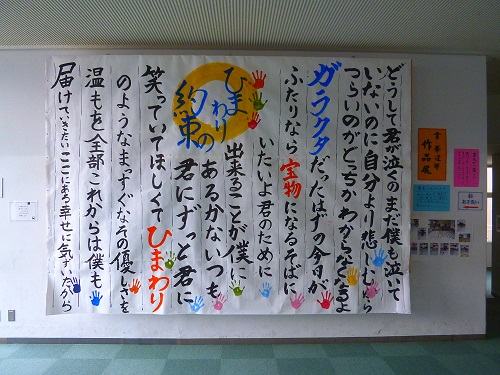 ひま
わりの
約束
どうして君が泣くのまだ僕も泣いて
いないのに自分より悲しむから
つらいのがどっちかわからなくなるよ
ガラクタだったはずの今日が
ふたりなら宝物になるそばに
いたいよ君のために
出来ることが僕に
あるかないつも
君にずっと君に
笑っていてほしくてひまわり
のようなまっすぐなその優しさを
温もりを全部これからは僕も
届けていきたいここにある幸せに気づいたから
作品展